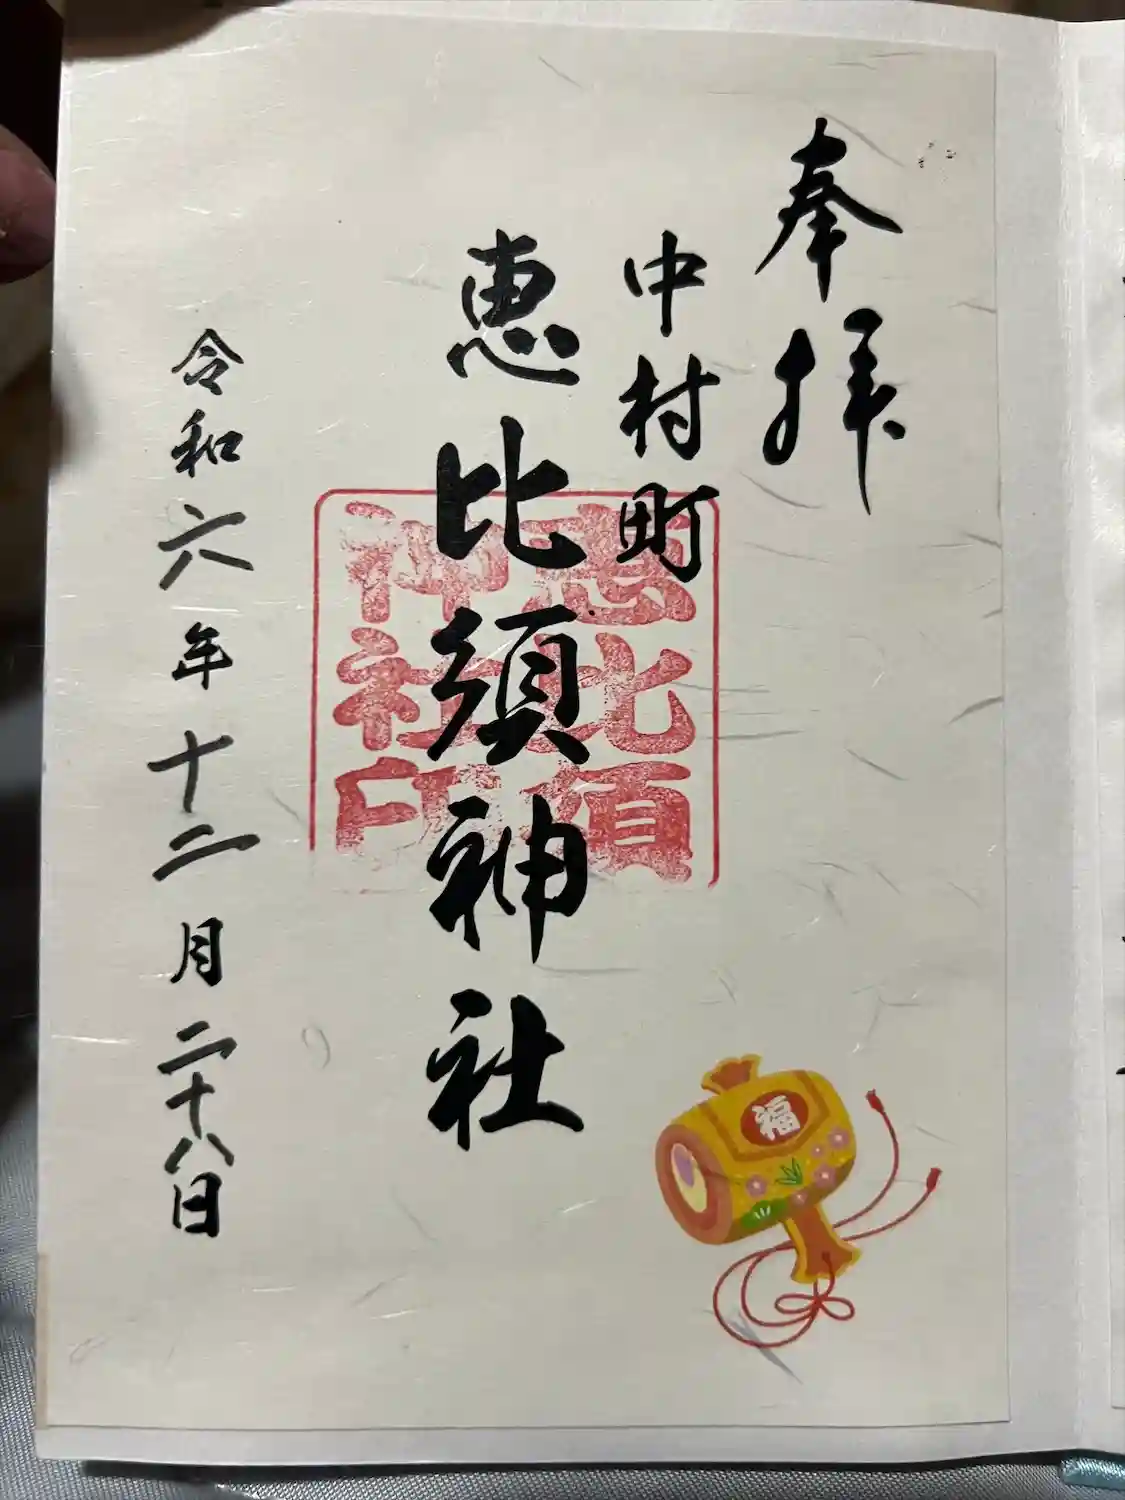 奉拝
中村町
恵比須神社
恵比須
神社印
令和六年十二月二十八日
福